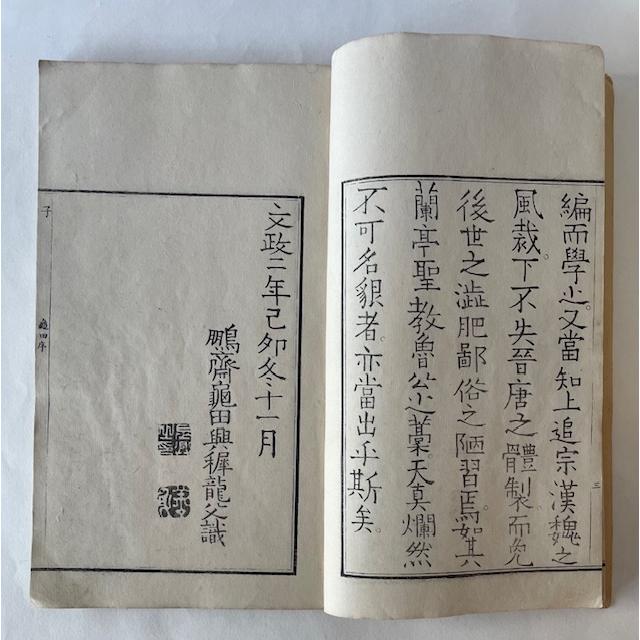 編而學之。又當知上追宗漢魏之
風裁。下不失晉唐之體製。而免
後世之澁肥鄙俗之陋習焉。如其
蘭亭聖教魯公之藁天真爛然
不可名貌者。亦當出乎斯矣。
三
文政二年己卯冬十一月
鵬齋龜田興穉龍父識
子
龜田序